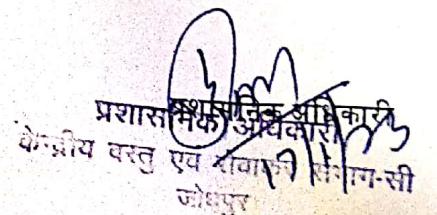 प्रशासनिक अधिकारी
प्रशासनिक अधिकारी
केन्द्रीय वस्तु एवं सेवाकर संभाग-सी
जोधपुर